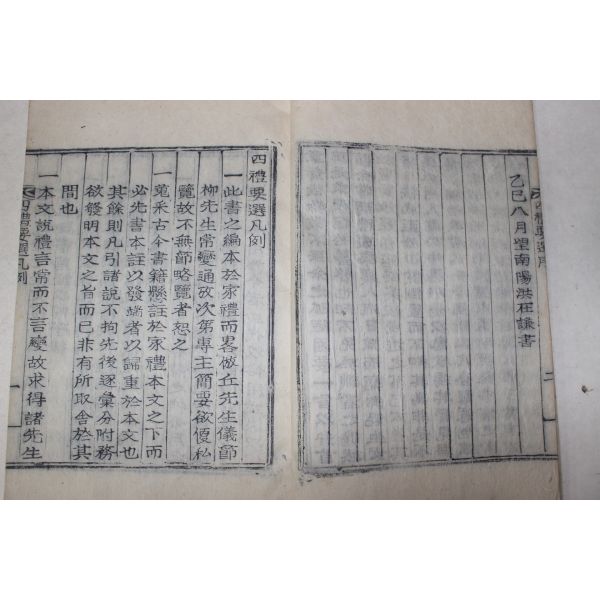 乙巳八月望南陽洪在謙書
四禮要選序
二
四禮要選凡例
一此書之編本於家禮而畧倣丘先生儀節
柳先生常變通攷次第專主簡要欲便私
覽故不無節略覽者恕之
一蒐采古今書籍懸註於家禮本文之下而
必先書本註以發端者以歸重於本文也
其餘則凡引諸說不拘先後逐彙分附務
欲發明本文之旨而已非有所取舍於其
間也
一本文說禮言常而不言變故求得諸先生
四禮要選凡例
一